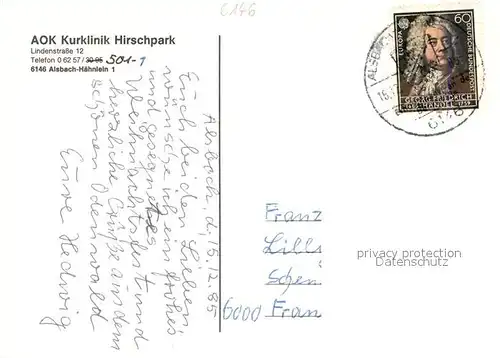 6146
AOK Kurklinik Hirschpark
Lindenstraße 12
Telefon 0 62 57 / 30 95 501-1
6146 Alsbach-Hähnlein 1
Alsbach, d. 15.12.85
Euch beiden Lieben
wünsche ich ein frohes
und gesegnetes
Weihnachtsfest und
herzliche Grüße aus dem
schönen Odenwald
Eure Hedwig
EUROPA
60
DEUTSCHE BUNDESPOST
GEORG FRIEDRICH
1685 HÄNDEL 1759
ALSBACH
6146
Franz
Lilli
Schen
6000 Fran
privacy protection
Datenschutz